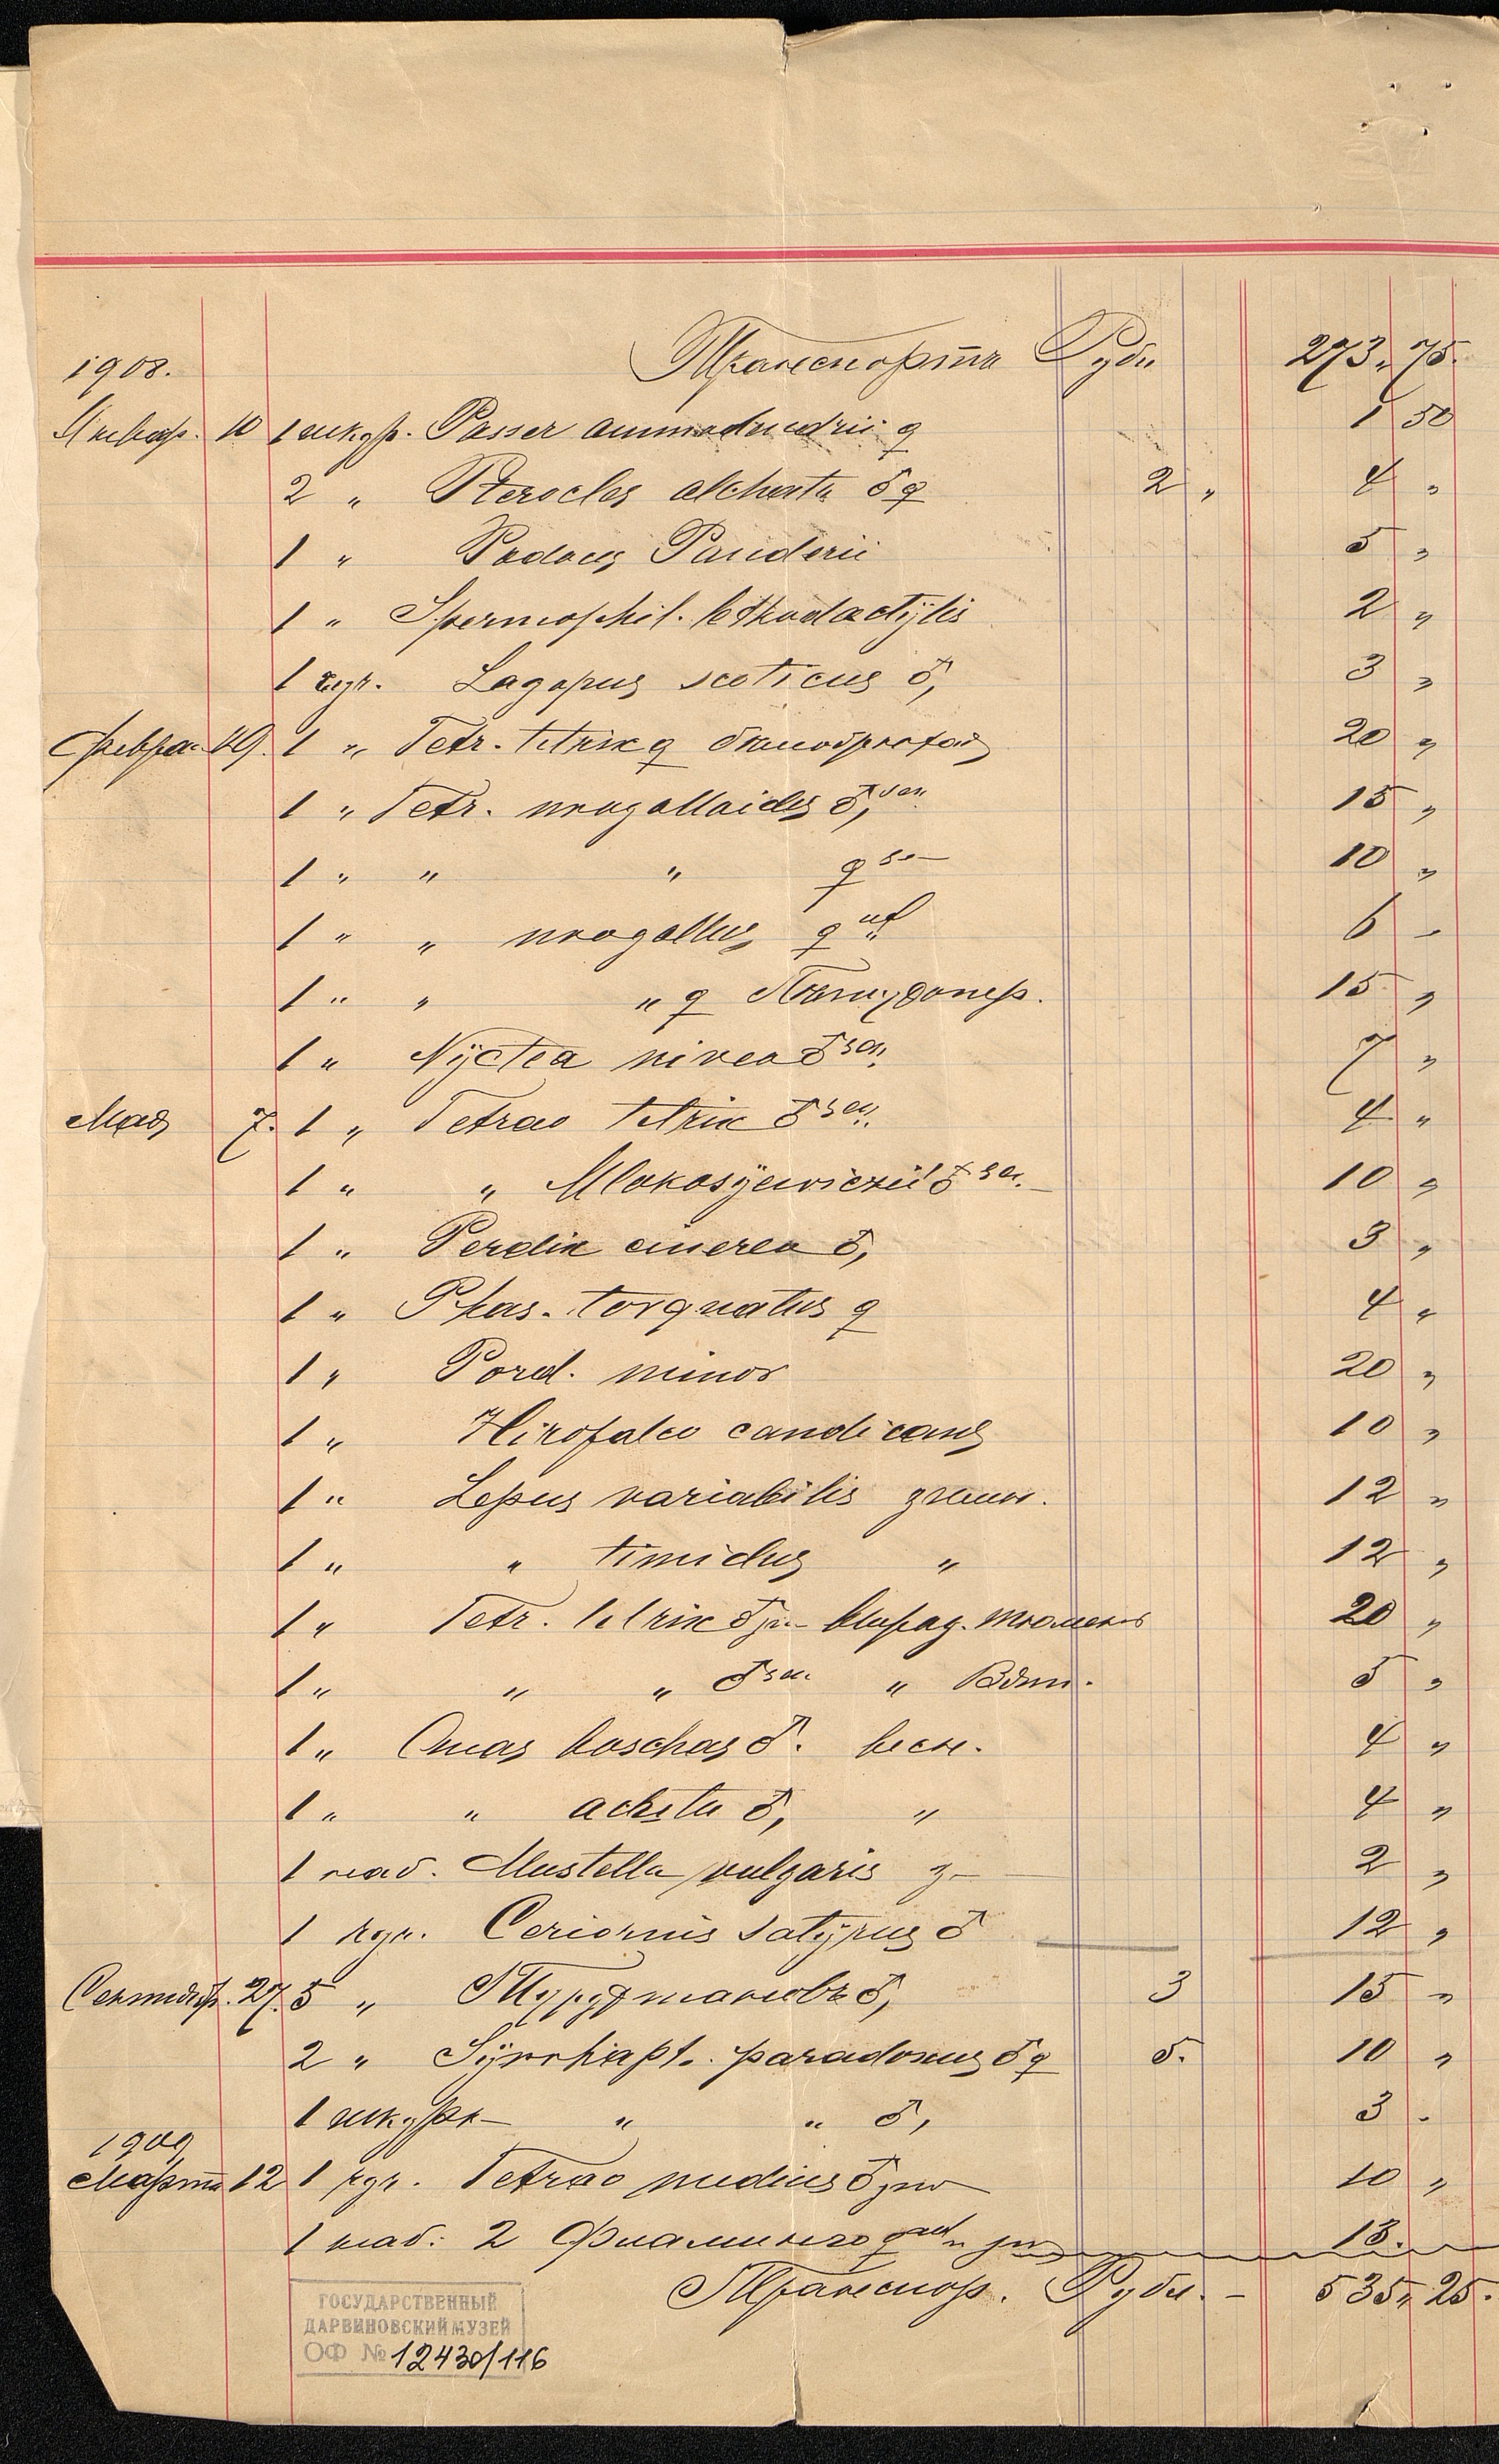 1908. Транспортъ Рубл 273 „ 75.
Январ. 10 1 шкур. Passer ammodendrii ♀ 1 50
2 „ Pterocles alchata ♂ ♀ 2 „ 4 „
1 „ Podoces Panderii 5 „
1 „ Spermophil. leptodactylis 2 „
1 чуч. Lagopus scoticus ♂, 3 „
Феврал. 19. 1 „ Tetr. tetrix ♀ 20 „
1 „ Tetr. urogalloides ♂, sen 15 „
1 „ „ „ ♀ sen 10 „
1 „ „ urogallus ♀ ad 6 „
1 „ „ „ ♀ 15 „
1 „ Nÿctea nivea ♂ sen. 7 „
Мая 7. 1 „ Tetrao tetrix ♂ sen. 4 „
1 „ „ Mlokosÿewiczii ♂ sen. 10 „
1 „ Perdix cinerea ♂, 3 „
1 „ Phas. torquatus ♀ 4 „
1 „ Pard. minor 20 „
1 „ Hirofalco candicans 10 „
1 „ Lepus variabilis зимн. 12 „
1 „ „ timidus „ 12 „
1 „ Tetr. tetrix ♂ juv Тюмень 20 „
1 „ „ „ ♂ sen. „ Вят. 5 „
1 „ Anas boschas ♂. весн. 4 „
1 „ „ acuta ♂, „ 4 „
1 наб. Mustella vulgaris 2 „
1 чуч. Ceriornis satÿrus ♂ 12 „
Сентябр. 27. 5 „ Турухтановъ ♂, 3 15 „
2 „ Sÿrrhapt. paradoxus ♂ ♀ 5. 10 „
1 шкурк „ „ ♂, 3 „
1909
Мартъ 12 1 чуч. Tetrao medius ♂ juv 10 „
1 наб: 2 Фламинго ♀ ad и juv 13.
Транспор. Рубл. — 535 „ 25.
ГОСУДАРСТВЕННЫЙ
ДАРВИНОВСКИЙ МУЗЕЙ
ОФ № 12430/116